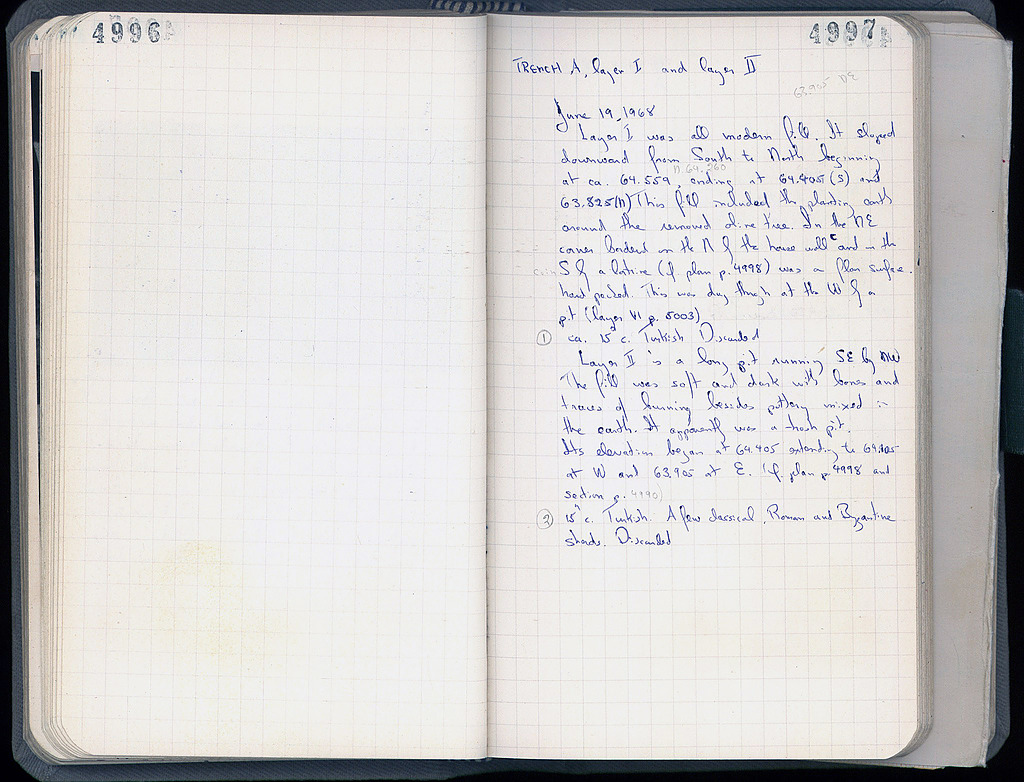 4996
4997
TRENCH A, layer I and layer II
63.905 NE
June 19, 1968
Layer I was all modern fill. It sloped
downward from South to North beginning
N. 64.260
at ca. 64.559, ending at 64.405 (S) and
63.825(N) This fill included the planting earth
around the removed olive tree. In the NE
corner bordered on the N by the house wall c and on the
coin
S by a latrine (cf plan p. 4998) was a floor surface.
hard packed. This was dug through at the W by a
pit (layer VI p. 5003)
① ca. 15 c. Turkish Discarded
Layer II is a long pit running SE by NW
The fill was soft and dark with bones and
traces of burning besides pottery mixed in
the earth. It apparently was a trash pit.
Its elevation began at 64.405 extending to 64.105
at W and 63.905 at E. (cf plan p. 4998 and
section p. 4990)
② 15th c. Turkish. A few classical, Roman and Byzantine
sherds. Discarded